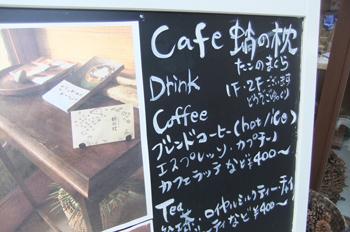 Cafe 蛸の枕
たこのまくら
Drink
1F・2Fございます
どうぞごゆっくり
Coffee
ブレンドコーヒー(hot/ice)
エスプレッソ・カプチーノ
カフェラッテなど¥400〜
Tea
紅茶・ロイヤルミルクティー・チャイ
など¥400〜